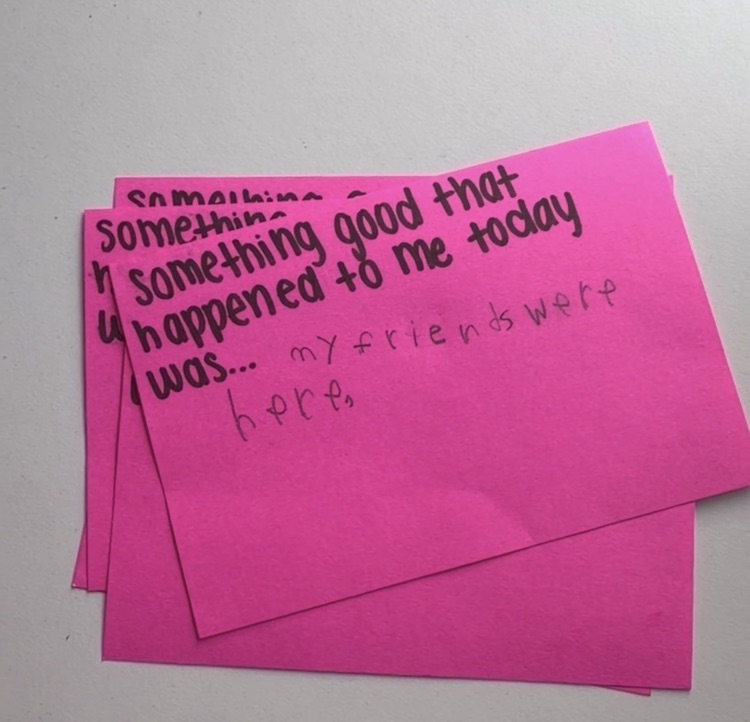 something
something
something good that
happened to me today
was... my friends were
here,